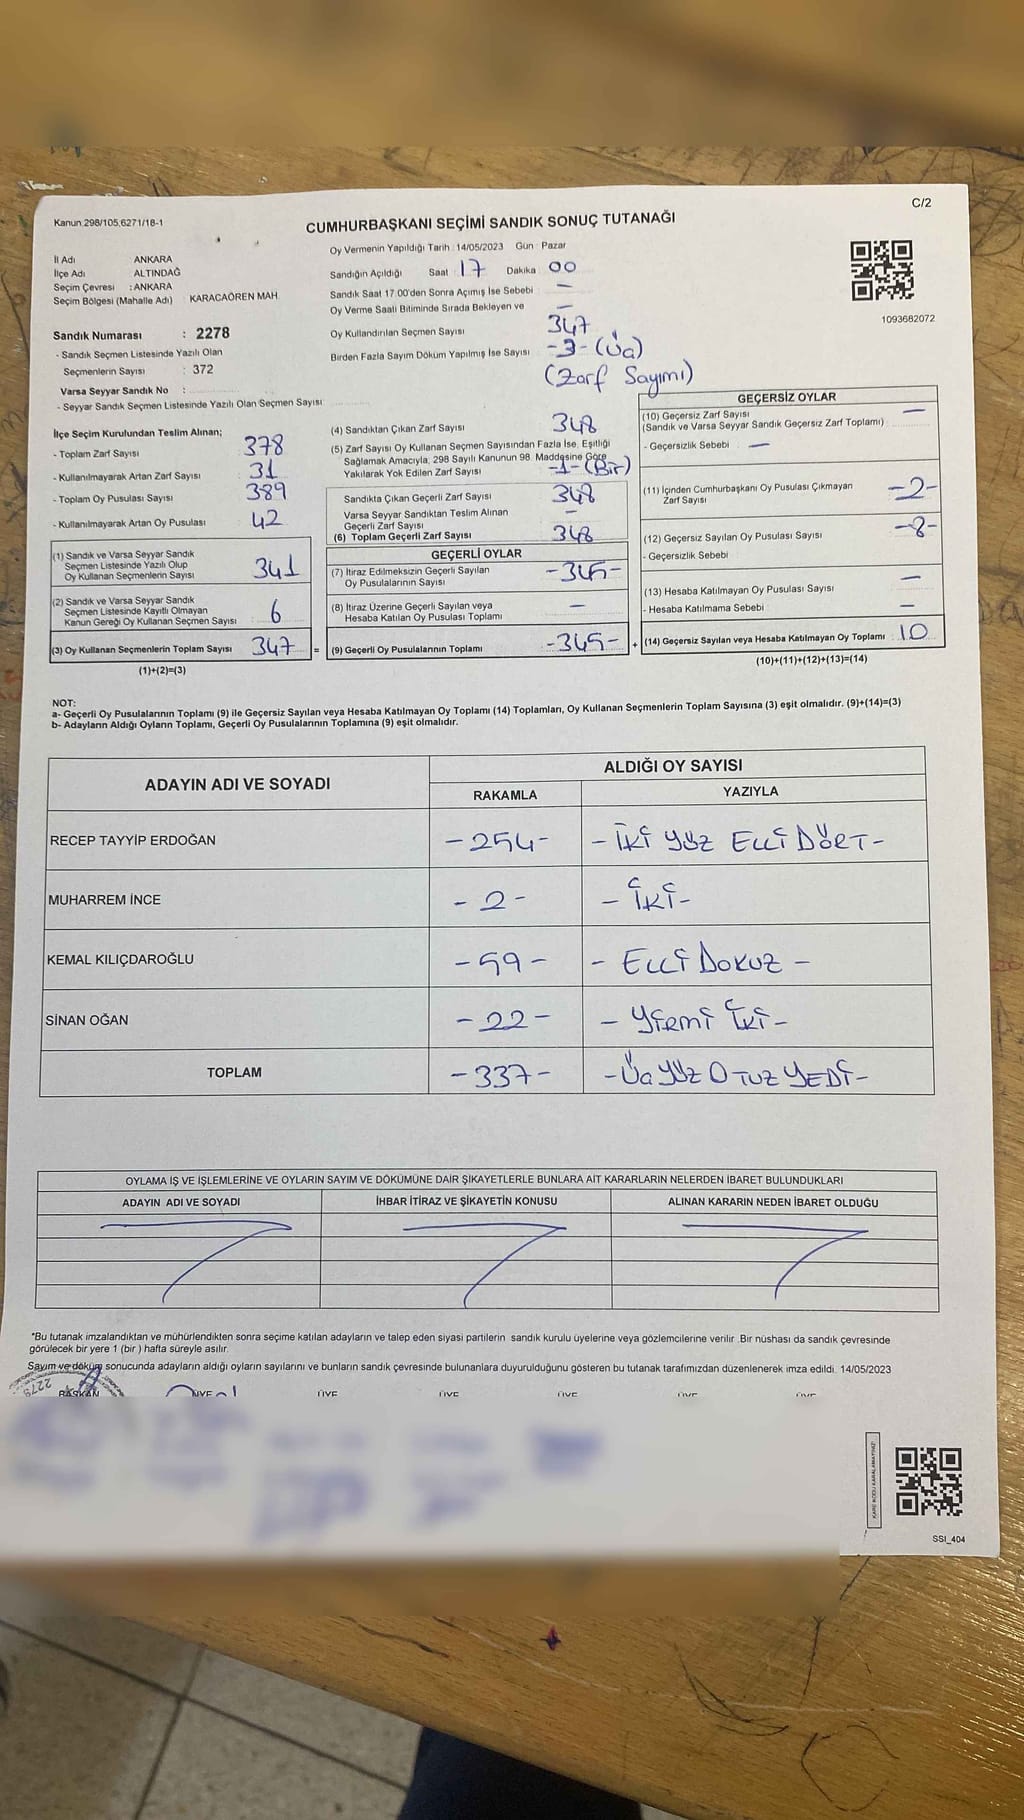 C/2
Kanun 298/105,6271/18-1
CUMHURBAŞKANI SEÇİMİ SANDIK SONUÇ TUTANAĞI
Oy Vermenin Yapıldığı Tarih : 14/05/2023 Gün : Pazar
İl Adı ANKARA
İlçe Adı ALTINDAĞ
Seçim Çevresi : ANKARA
Seçim Bölgesi (Mahalle Adı) : KARACAÖREN MAH.
Sandığın Açıldığı Saat 17 Dakika 00
Sandık Saat 17.00'den Sonra Açımış İse Sebebi —
Oy Verme Saati Bitiminde Sırada Bekleyen ve —
Oy Kullandırılan Seçmen Sayısı 347
Birden Fazla Sayım Döküm Yapılmış İse Sayısı -3- (Üç)
(Zarf Sayımı)
1093682072
Sandık Numarası : 2278
- Sandık Seçmen Listesinde Yazılı Olan
Seçmenlerin Sayısı : 372
Varsa Seyyar Sandık No :
- Seyyar Sandık Seçmen Listesinde Yazılı Olan Seçmen Sayısı
İlçe Seçim Kurulundan Teslim Alınan;
- Toplam Zarf Sayısı 378
- Kullanılmayarak Artan Zarf Sayısı 31
- Toplam Oy Pusulası Sayısı 389
- Kullanılmayarak Artan Oy Pusulası 42
(1) Sandık ve Varsa Seyyar Sandık
Seçmen Listesinde Yazılı Olup
Oy Kullanan Seçmenlerin Sayısı 341
(2) Sandık ve Varsa Seyyar Sandık
Seçmen Listesinde Kayıtlı Olmayan
Kanun Gereği Oy Kullanan Seçmen Sayısı 6
(3) Oy Kullanan Seçmenlerin Toplam Sayısı 347
(1)+(2)=(3)
(4) Sandıktan Çıkan Zarf Sayısı 348
(5) Zarf Sayısı Oy Kullanan Seçmen Sayısından Fazla İse, Eşitliği
Sağlamak Amacıyla, 298 Sayılı Kanunun 98. Maddesine Göre
Yakılarak Yok Edilen Zarf Sayısı -1- (Bir)
Sandıkta Çıkan Geçerli Zarf Sayısı 348
Varsa Seyyar Sandıktan Teslim Alınan
Geçerli Zarf Sayısı —
(6) Toplam Geçerli Zarf Sayısı 348
GEÇERLİ OYLAR
(7) İtiraz Edilmeksizin Geçerli Sayılan
Oy Pusulalarının Sayısı -345-
(8) İtiraz Üzerine Geçerli Sayılan veya
Hesaba Katılan Oy Pusulası Toplamı —
= (9) Geçerli Oy Pusulalarının Toplamı -345-
GEÇERSİZ OYLAR
(10) Geçersiz Zarf Sayısı —
(Sandık ve Varsa Seyyar Sandık Geçersiz Zarf Toplamı)
- Geçersizlik Sebebi —
(11) İçinden Cumhurbaşkanı Oy Pusulası Çıkmayan
Zarf Sayısı -2-
(12) Geçersiz Sayılan Oy Pusulası Sayısı -8-
- Geçersizlik Sebebi
(13) Hesaba Katılmayan Oy Pusulası Sayısı —
- Hesaba Katılmama Sebebi —
+ (14) Geçersiz Sayılan veya Hesaba Katılmayan Oy Toplamı 10
(10)+(11)+(12)+(13)=(14)
NOT:
a- Geçerli Oy Pusulalarının Toplamı (9) ile Geçersiz Sayılan veya Hesaba Katılmayan Oy Toplamı (14) Toplamları, Oy Kullanan Seçmenlerin Toplam Sayısına (3) eşit olmalıdır. (9)+(14)=(3)
b- Adayların Aldığı Oyların Toplamı, Geçerli Oy Pusulalarının Toplamına (9) eşit olmalıdır.
ADAYIN ADI VE SOYADI ALDIĞI OY SAYISI
RAKAMLA YAZIYLA
RECEP TAYYİP ERDOĞAN -254- - İKİ YÜZ ELLİ DÖRT -
MUHARREM İNCE - 2 - - İKİ -
KEMAL KILIÇDAROĞLU - 59 - - ELLİ DOKUZ -
SİNAN OĞAN - 22 - - YİRMİ İKİ -
TOPLAM - 337 - - ÜÇ YÜZ OTUZ YEDİ -
OYLAMA İŞ VE İŞLEMLERİNE VE OYLARIN SAYIM VE DÖKÜMÜNE DAİR ŞİKAYETLERLE BUNLARA AİT KARARLARIN NELERDEN İBARET BULUNDUKLARI
ADAYIN ADI VE SOYADI İHBAR İTİRAZ VE ŞİKAYETİN KONUSU ALINAN KARARIN NEDEN İBARET OLDUĞU
*Bu tutanak imzalandıktan ve mühürlendikten sonra seçime katılan adayların ve talep eden siyasi partilerin sandık kurulu üyelerine veya gözlemcilerine verilir. Bir nüshası da sandık çevresinde
görülecek bir yere 1 (bir ) hafta süreyle asılır.
Sayım ve döküm sonucunda adayların aldığı oyların sayılarını ve bunların sandık çevresinde bulunanlara duyurulduğunu gösteren bu tutanak tarafımızdan düzenlenerek imza edildi. 14/05/2023
BAŞKAN ÜYE ÜYE ÜYE ÜYE ÜYE ÜYE
SSI_404